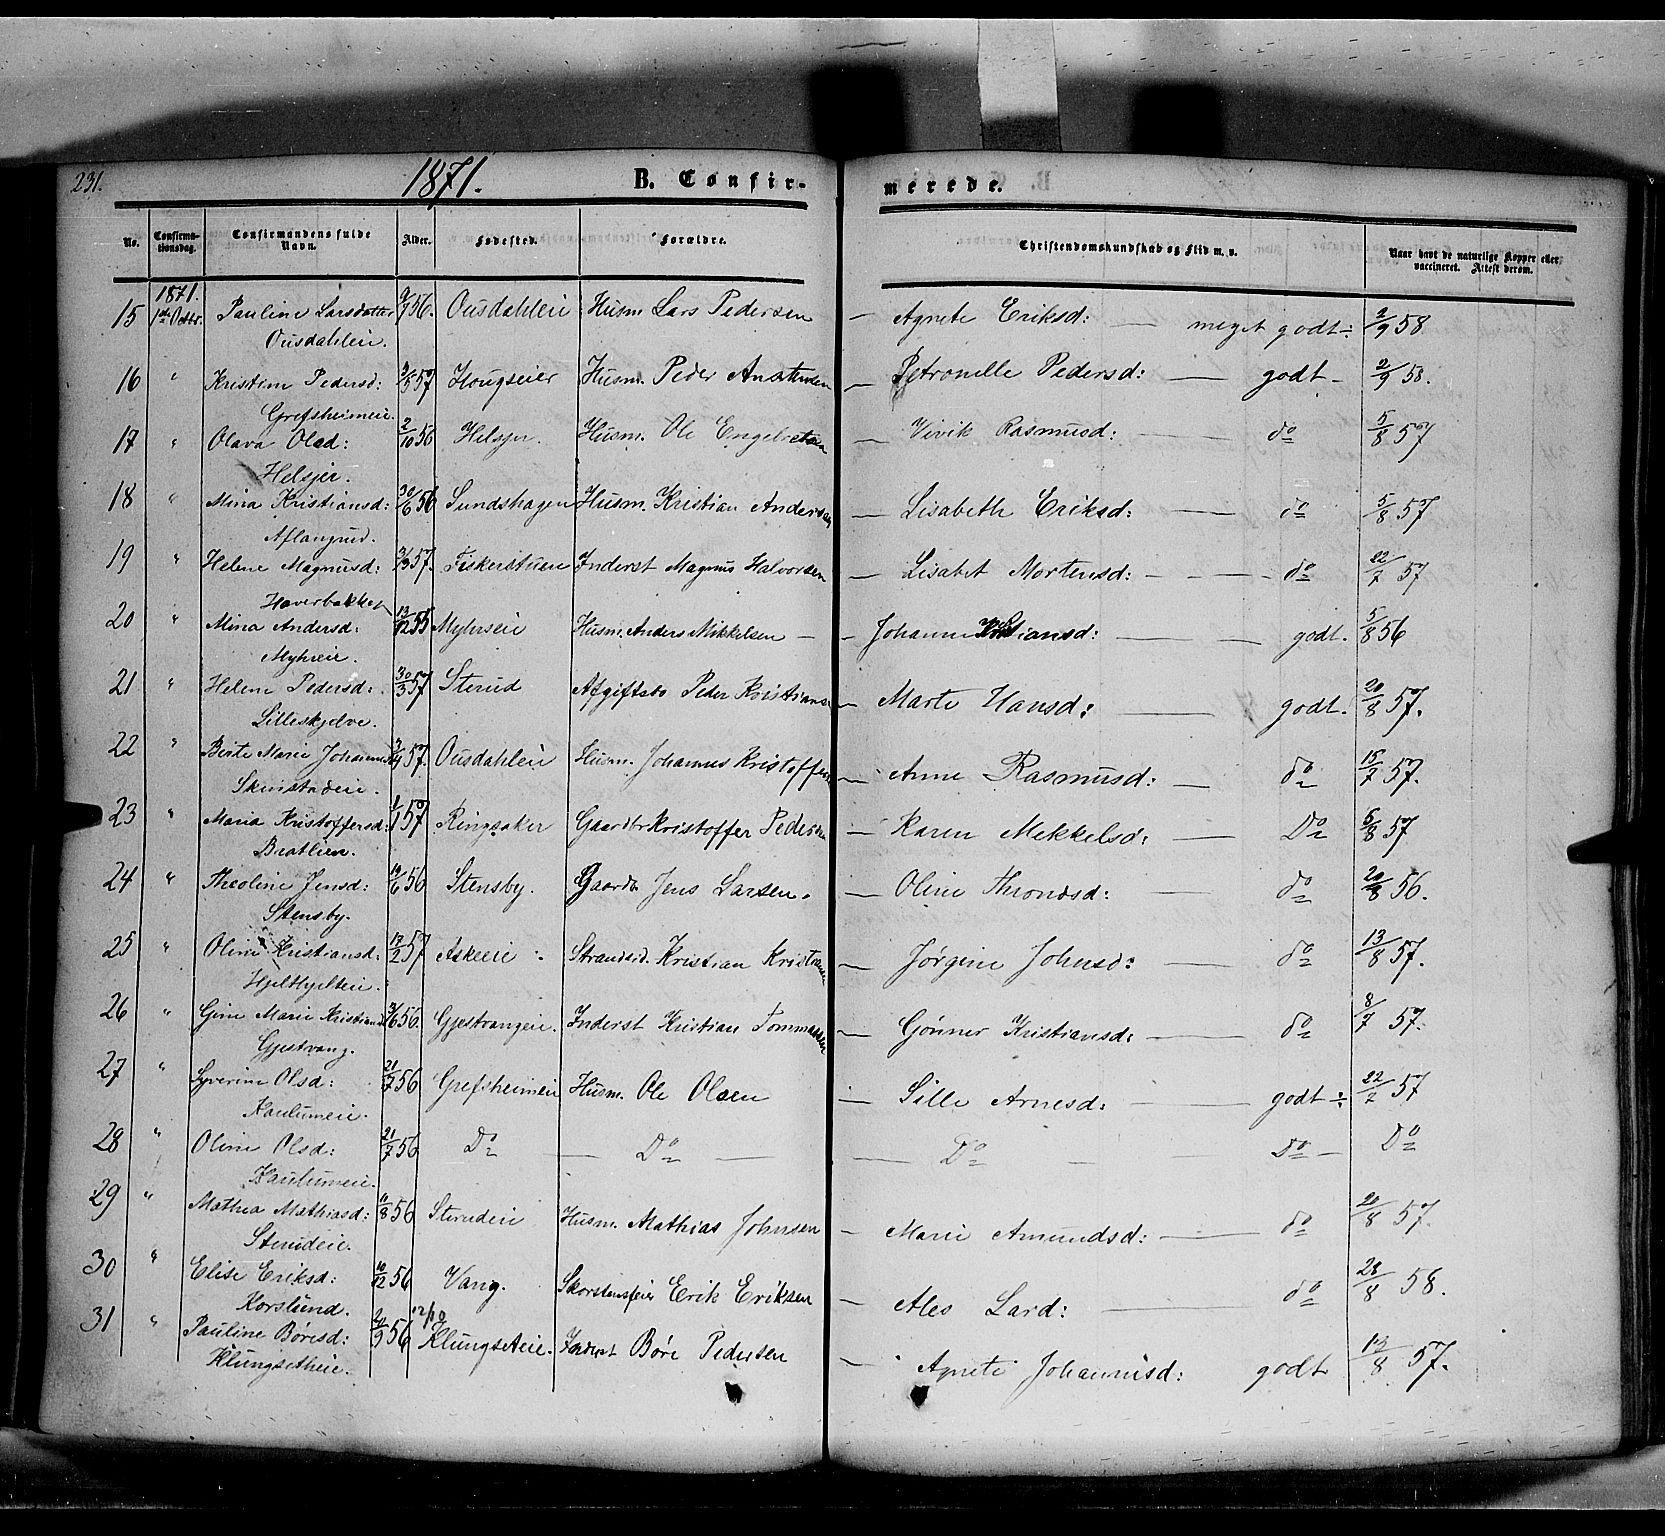 231.
1871.
B. Confir-
merede.
No.
Confirma-
tionsdag.
Confirmandens fulde
Navn.
Alder.
Fødested.
Forældre.
Christendomskundskab og Flid m. v.
Naar havt de naturlige Kopper eller
vaccineret. Attest derom.
1871.
15 1ste Octbr. Pauline Larsdatter 9/7 56. Ousdahleie Husm Lars Pedersen — Agnete Eriksd: — meget godt ÷ 2/9 58
Ousdahleie.
16 " Kristine Pedersd: 3/5 57 Hougseier Husm. Peder Anstensen — Petronelle Pedersd: — godt — 2/9 58.
Grefsheimeie.
17 " Olava Olsd: 2/10 56 Helsjer. Husm. Ole Engebretsen — Vivik Rasmusd: — do 5/8 57
Helsjer.
18 " Mina Kristiansd: 30/6 56 Sundshagen Husm. Kristian Andersen — Lisabeth Eriksd: — do 5/8 57
Aflangrud.
19 " Helene Magnusd: 3/3 57. Fiskerstuen Inderst Magnus Halvorsen — Lisabet Mortensd: — do 22/7 57
Haverbakken
20 " Mina Andersd: 13/12 55 Myhreie Husm. Anders Mikkelsen — Johanne Kristiansd: — godt. 5/8 56
Myhreie.
21 " Helene Pedersd: 30/3 57 Sterud Afgiftsbo Peder Kristians — Marte Hansd: — godt. 20/8 57.
Lilleskjelve.
22 " Berte Marie Johannesd 3/4 57. Ousdahleie Husm. Johannes Kristoffersen — Anne Rasmusd: — do 15/7 57.
Skinstadeie.
23 " Maria Kristoffersd: 1/1 57 Ringsaker Gaardbr Kristoffer Pedersen — Karen Mekkelsd: Do 5/8 57
Bratlien.
24 " Theoline Jensd: 10/6 56 Stensby. Gaardb Jens Larsen. — Oline Throndsd: — do 20/8 56.
Stensby.
25 " Oline Kristiansd: 12/2 57 Askeeie Strandsid. Kristian Kristiansen — Jørgine Johnsd: — do 13/8 57.
Hjelthjelteie.
26 " Gine Marie Kristiansd 3/6 56. Gjestvangeie. Inderst Kristian Tommassen — Gønner Kristiansd: — do 8/7 57.
Gjestvang.
27 " Syverine Olsd: 21/7 56 Grefsheimeie Husm. Ole Olsen — Sille Arnesd: — godt ÷ 22/2 57
Kaulumeie.
28 " Oline Olsd: 21/7 56 Do — Do — — Do — Do — Do
Kaulumeie.
29 " Mathea Mathiasd: 11/8 56 Sterudeie Husm. Mathias Johnsen — Marie Amundsd: — do 20/8 57.
Sterudeie.
30 " Elise Eriksd: 10/12 56 Vang. Skorstensfeier Erik Eriksen — Ales Larsd: — do 28/8 58.
Korslund.
31 " Pauline Børesd: 2/9 56 Klungseteie. Inderst Børe Pedersen — Agnete Johannisd: godt 12/8 57.
Klungsetheie.